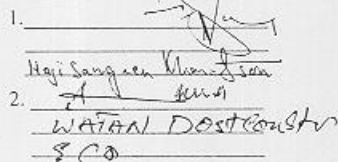 1.
Haji Sangeen Khan & son
2.
WATAN DOST CONSTR
& CO